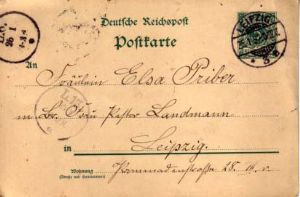 Deutsche Reichspost
Postkarte
LEIPZIG
An
Fräulein Elsa Priber
Frau Pastor Landmann
in Leipzig.
Wohnung
(Straße und Hausnummer)
28